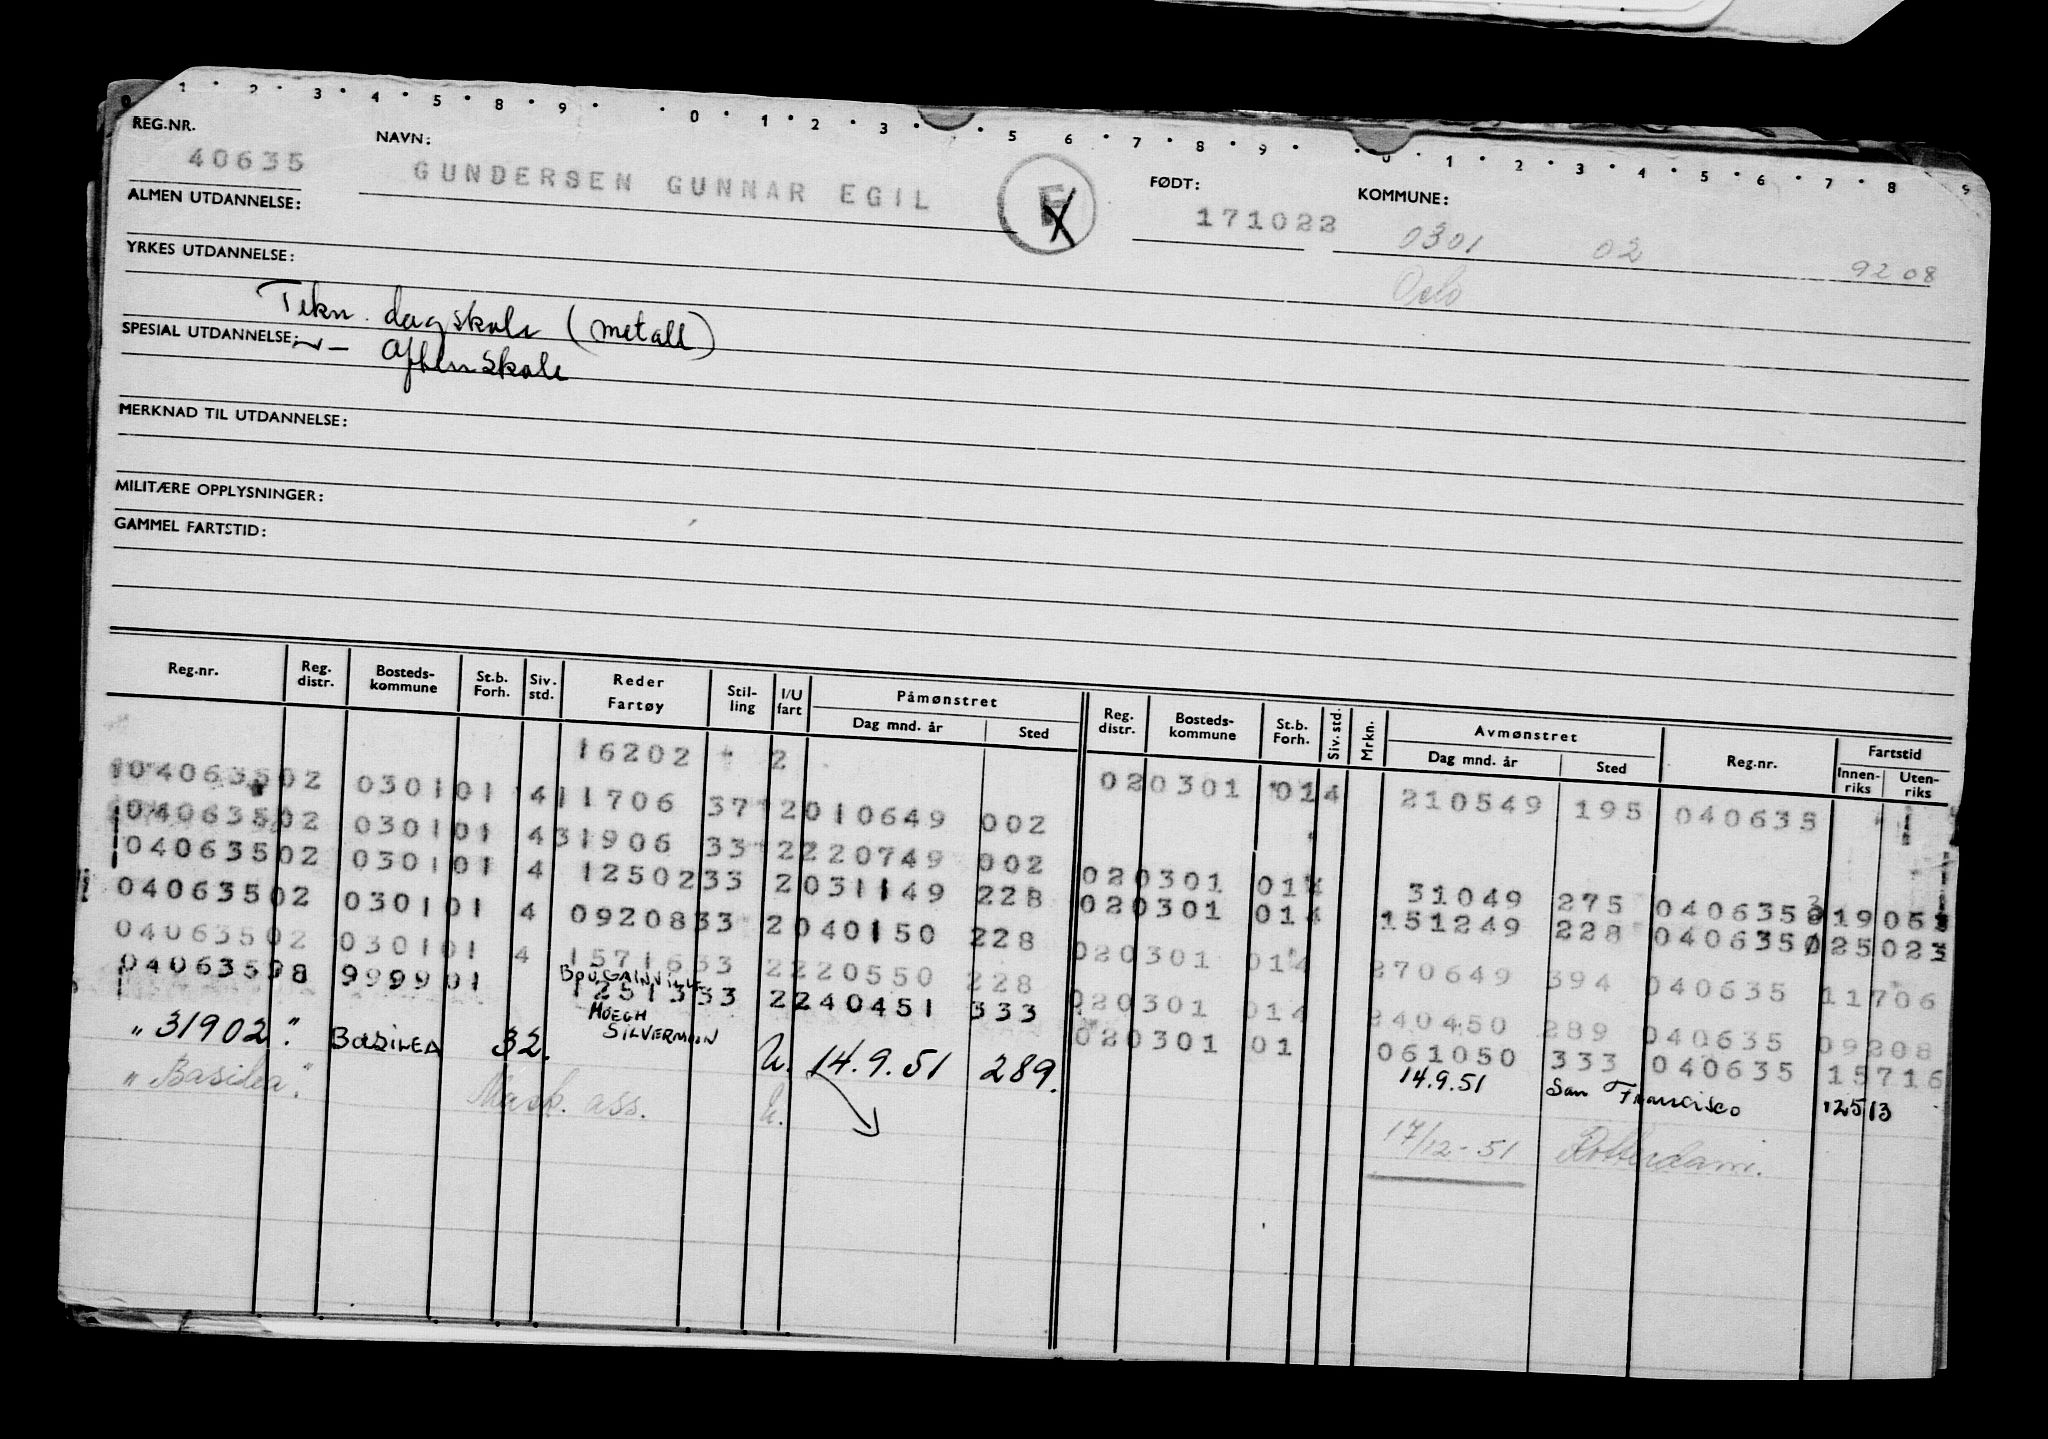 0 1 2 3 4 5 8 9 0 1 2 3 5 6 7 8 9 0 1 2 3 4 5 6 7 8 9
REG.NR. NAVN: FØDT: KOMMUNE:
40635 GUNDERSEN GUNNAR EGIL 171022 0301 02 9208
Oslo
ALMEN UTDANNELSE:
YRKES UTDANNELSE:
Tekn. dagskole (metall)
SPESIAL UTDANNELSE: ~ — Aftenskole
MERKNAD TIL UTDANNELSE:
MILITÆRE OPPLYSNINGER:
GAMMEL FARTSTID:
Reg.nr. Reg. distr. Bosteds-kommune St.b. Forh. Siv. std. Reder Fartøy Stil-ling I/U fart Påmønstret Dag mnd. år Sted Reg. distr. Bosteds-kommune St.b. Forh. Siv. std. Mrkn. Avmønstret Dag mnd. år Sted Reg.nr. Fartstid Innen-riks Uten-riks
16202 2 020301 014 210549 195 040635
04063502 030101 411706 37 2010649 002
04063502 030101 431906 33 2220749 002
04063502 030101 4 1250233 2031149 228 020301 014 31049 275 040635 319053
04063502 030101 4 0920833 2040150 228 020301 014 151249 228 0406350 25023
04063502 030101 4 1571633 2220550 228 020301 014 270649 394 040635 11706
BOUGAINVILLE
04063598 999901 1251333 2240451 333 020301 014 240450 289 040635 09208
HÖEGH SILVERMOON
020301 01 061050 333 040635 15716
" 31902 " BASILEA 32. U. 14.9.51 289. 14.9.51 San Francisco 12513
" Basilea " Mask. ass. U. 17/12-51 Rotterdam.